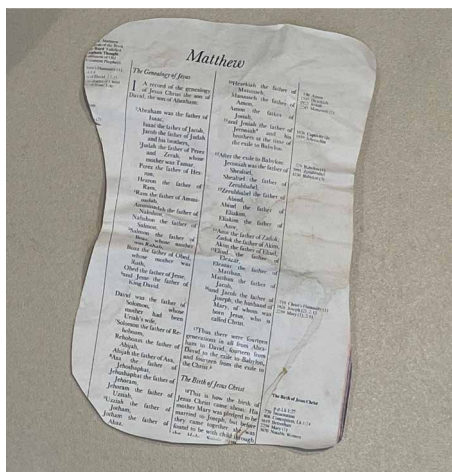 Matthew
The Genealogy of Jesus
1 A record of the genealogy
of Jesus Christ the son of
David, the son of Abraham:
2Abraham was the father of
Isaac,
Isaac the father of Jacob,
Jacob the father of Judah
and his brothers,
3Judah the father of Perez
and Zerah, whose
mother was Tamar,
Perez the father of Hez-
ron,
Hezron the father of
Ram,
4Ram the father of Ammi-
nadab,
Amminadab the father of
Nahshon,
Nahshon the father of
Salmon,
5Salmon the father of
Boaz, whose mother
was Rahab,
Boaz the father of Obed,
whose mother was
Ruth,
Obed the father of Jesse,
6and Jesse the father of
King David.
David was the father of
Solomon, whose
mother had been
Uriah's wife,
7Solomon the father of Re-
hoboam,
Rehoboam the father of
Abijah,
Abijah the father of Asa,
8Asa the father of
Jehoshaphat,
Jehoshaphat the father of
Jehoram,
Jehoram the father of
Uzziah,
9Uzziah the father of
Jotham,
Jotham the father of
Ahaz,
10Hezekiah the father of
Manasseh,
Manasseh the father of
Amon,
Amon the father of
Josiah,
11and Josiah the father of
Jeremiah and his
brothers at the time of
the exile to Babylon.
12After the exile to Babylon:
Jeremiah was the father of
Shealtiel,
Shealtiel the father of
Zerubbabel,
13Zerubbabel the father of
Abiud,
Abiud the father of
Eliakim,
Eliakim the father of
Azor,
14Azor the father of Zadok,
Zadok the father of Akim,
Akim the father of Eliud,
15Eliud the father of
Eleazar,
Eleazar the father of
Matthan,
Matthan the father of
Jacob,
16and Jacob the father of
Joseph, the husband of
Mary, of whom was
born Jesus, who is
called Christ.
17Thus there were fourteen
generations in all from Abra-
ham to David, fourteen from
David to the exile to Babylon,
and fourteen from the exile to
the Christ.
The Birth of Jesus Christ
18This is how the birth of
Jesus Christ came about: His
mother Mary was pledged to be
married to Joseph, but before
they came together, she was
found to be with child through
The Birth of Jesus Christ